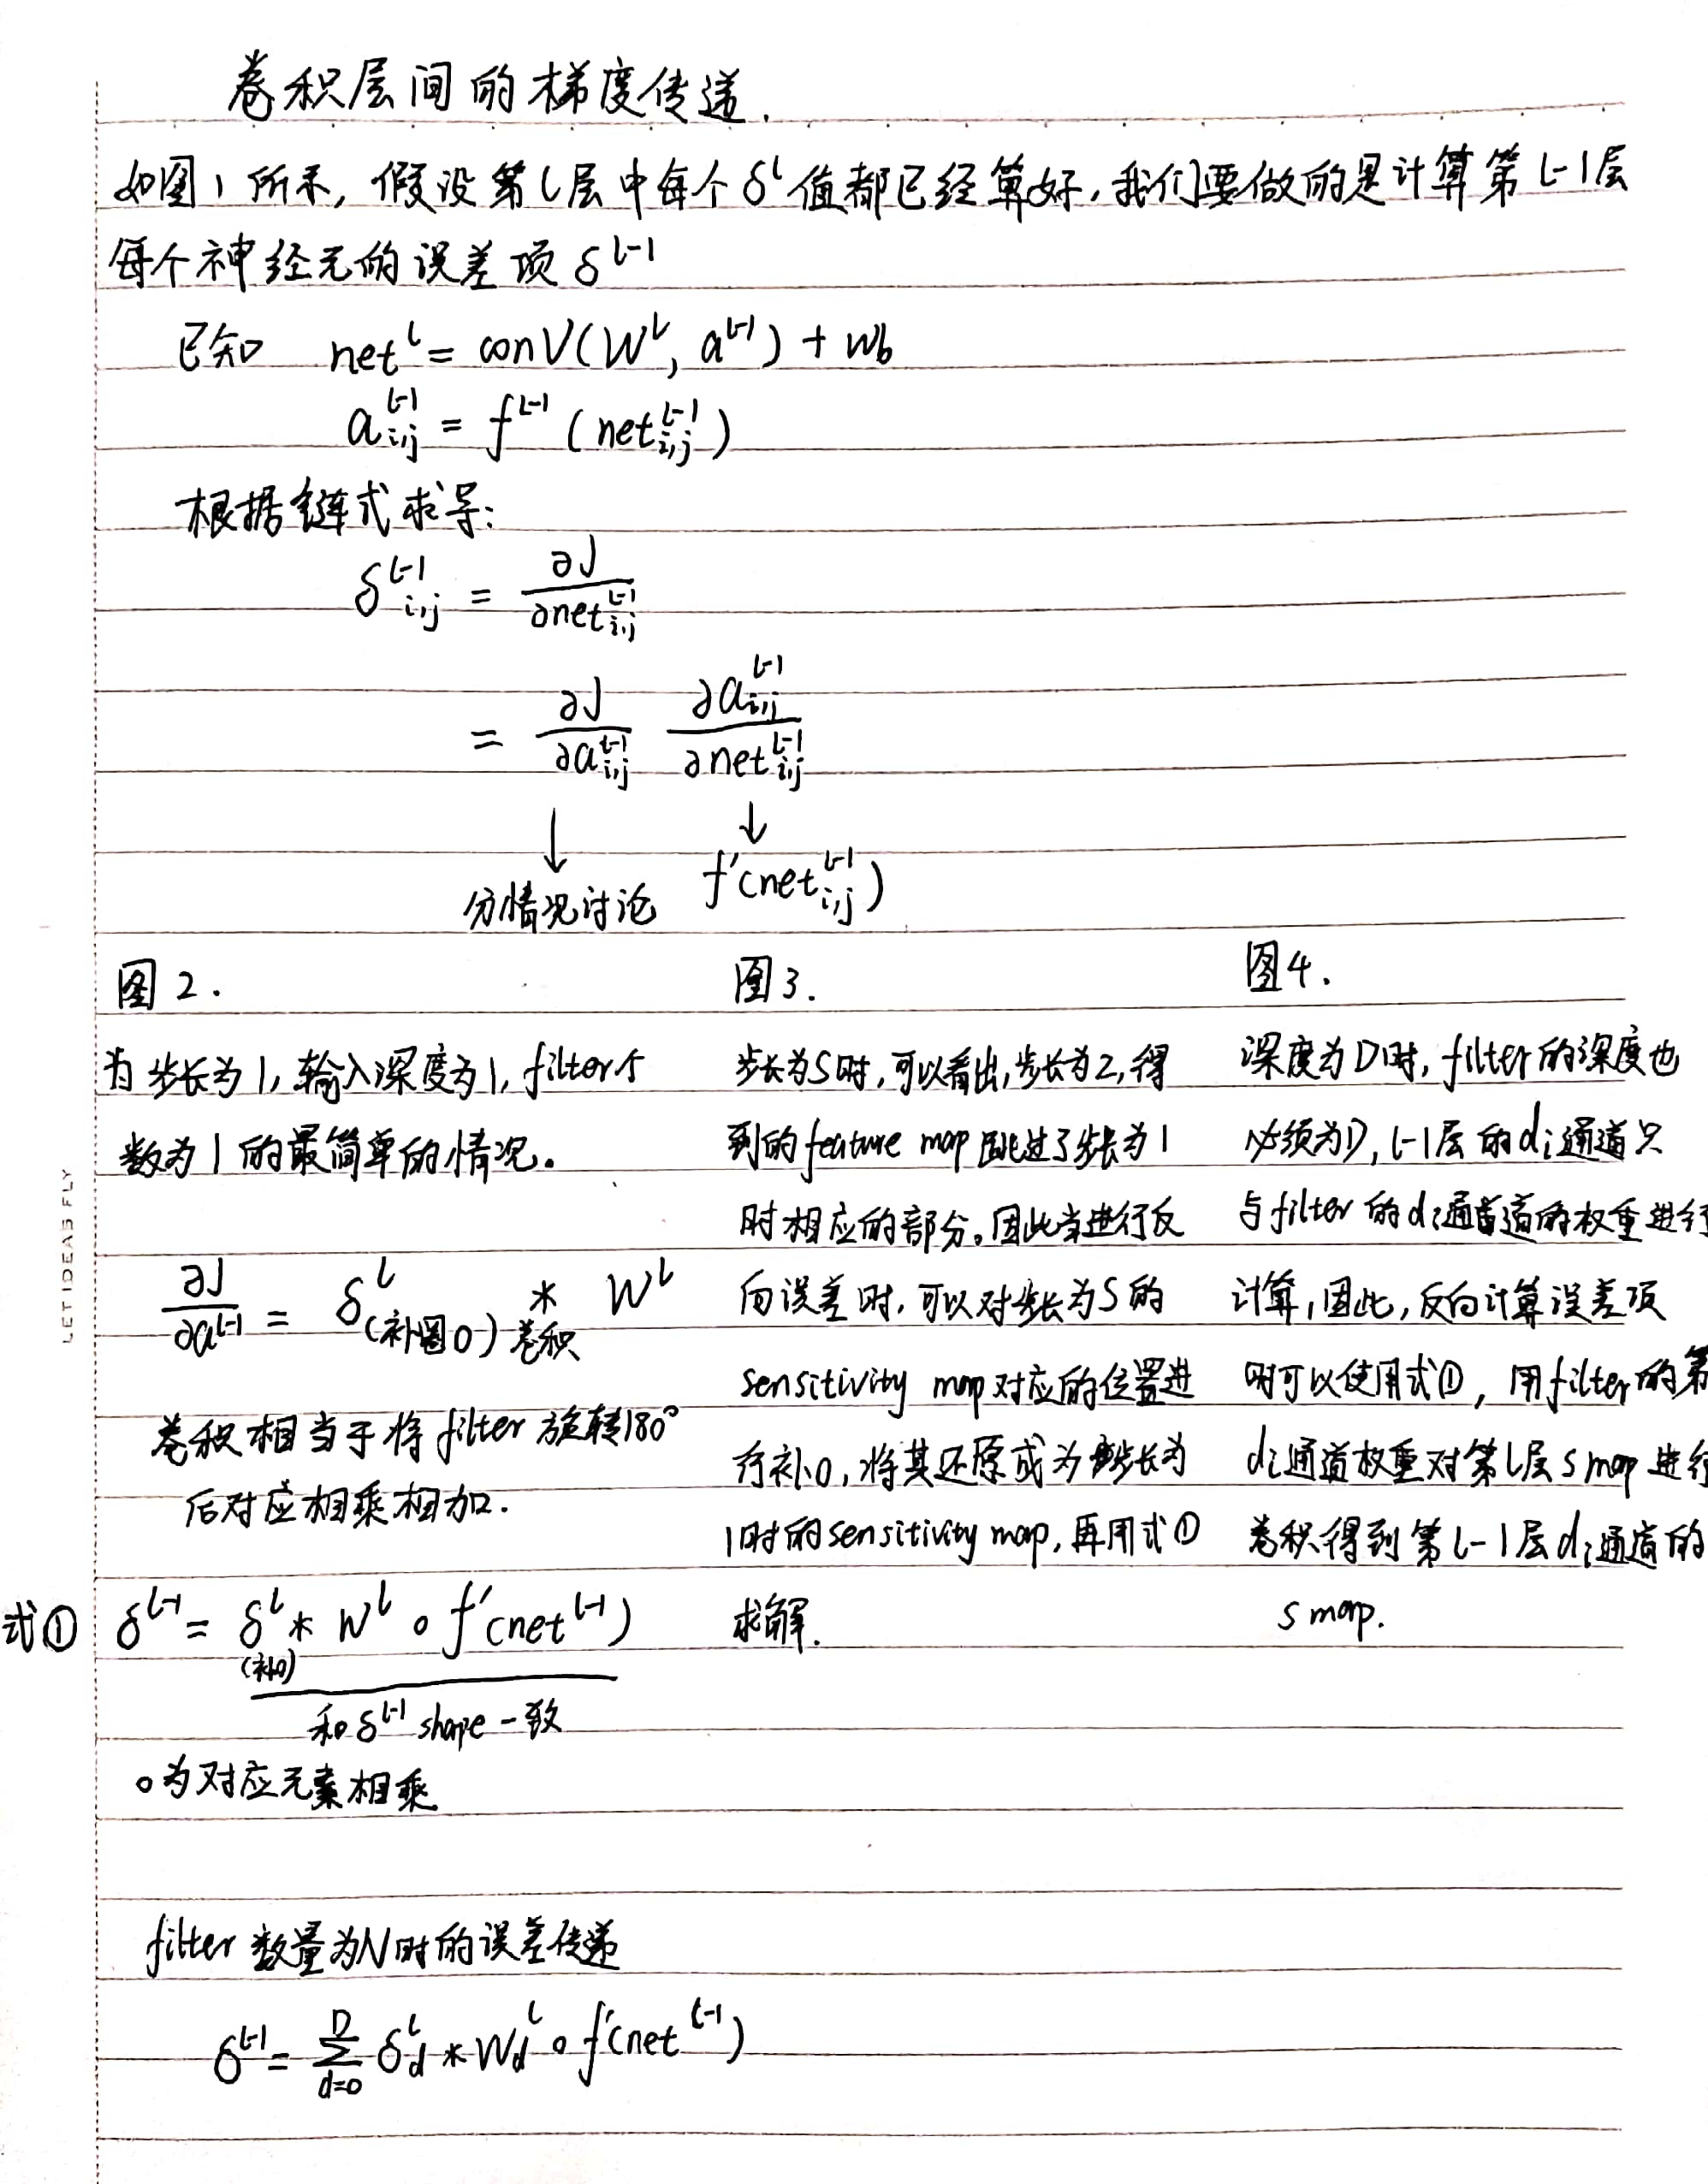 卷积层间的梯度传递.
如图1所示, 假设第l层中每个δ^l值都已经算好, 我们要做的是计算第l-1层
每个神经元的误差项δ^{l-1}
已知 net^l = conV(W^l, a^{l-1}) + Wb
a_{i,j}^{l-1} = f^{l-1}(net_{i,j}^{l-1})
根据链式求导:
δ_{i,j}^{l-1} = ∂J / ∂net_{i,j}^{l-1}
= ∂J / ∂a_{i,j}^{l-1} ∂a_{i,j}^{l-1} / ∂net_{i,j}^{l-1}
↓ ↓
分情况讨论 f'(net_{i,j}^{l-1})
图2.
为步长为1, 输入深度为1, filter个
数为1的最简单的情况。
∂J / ∂a^{l-1} = δ^l (补圈0) * 卷积 W^l
卷积相当于将filter旋转180°
后对应相乘相加.
式① δ^{l-1} = δ^l * W^l ∘ f'(net^{l-1})
(补0)
和δ^{l-1} shape一致
∘为对应元素相乘
图3.
步长为S时, 可以看出, 步长为2, 得
到的feature map跳过了步长为1
时相应的部分。因此当进行反
向误差时, 可以对步长为S的
sensitivity map对应的位置进
行补0, 将其还原成为步长为
1时的sensitivity map, 再用式①
求解.
图4.
深度为D时, filter的深度也
必须为D, l-1层的di通道只
与filter的di通道的权重进行
计算, 因此, 反向计算误差项
时可以使用式①, 用filter的第
di通道权重对第l层s map进行
卷积得到第l-1层di通道的
s map.
filter数量为N时的误差传递
δ^{l-1} = Σ_{d=0}^{D} δ_d^l * W_d^l ∘ f'(net^{l-1})
LET IDEAS FLY